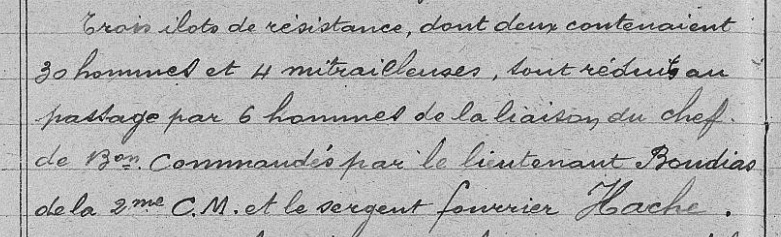 Trois ilots de résistance, dont deux contenaient
30 hommes et 4 mitrailleuses, sont réduits au
passage par 6 hommes de la liaison du chef.
de Bon. Commandés par le lieutenant Boudias
de la 2me C.M. et le sergent fourrier Hache.